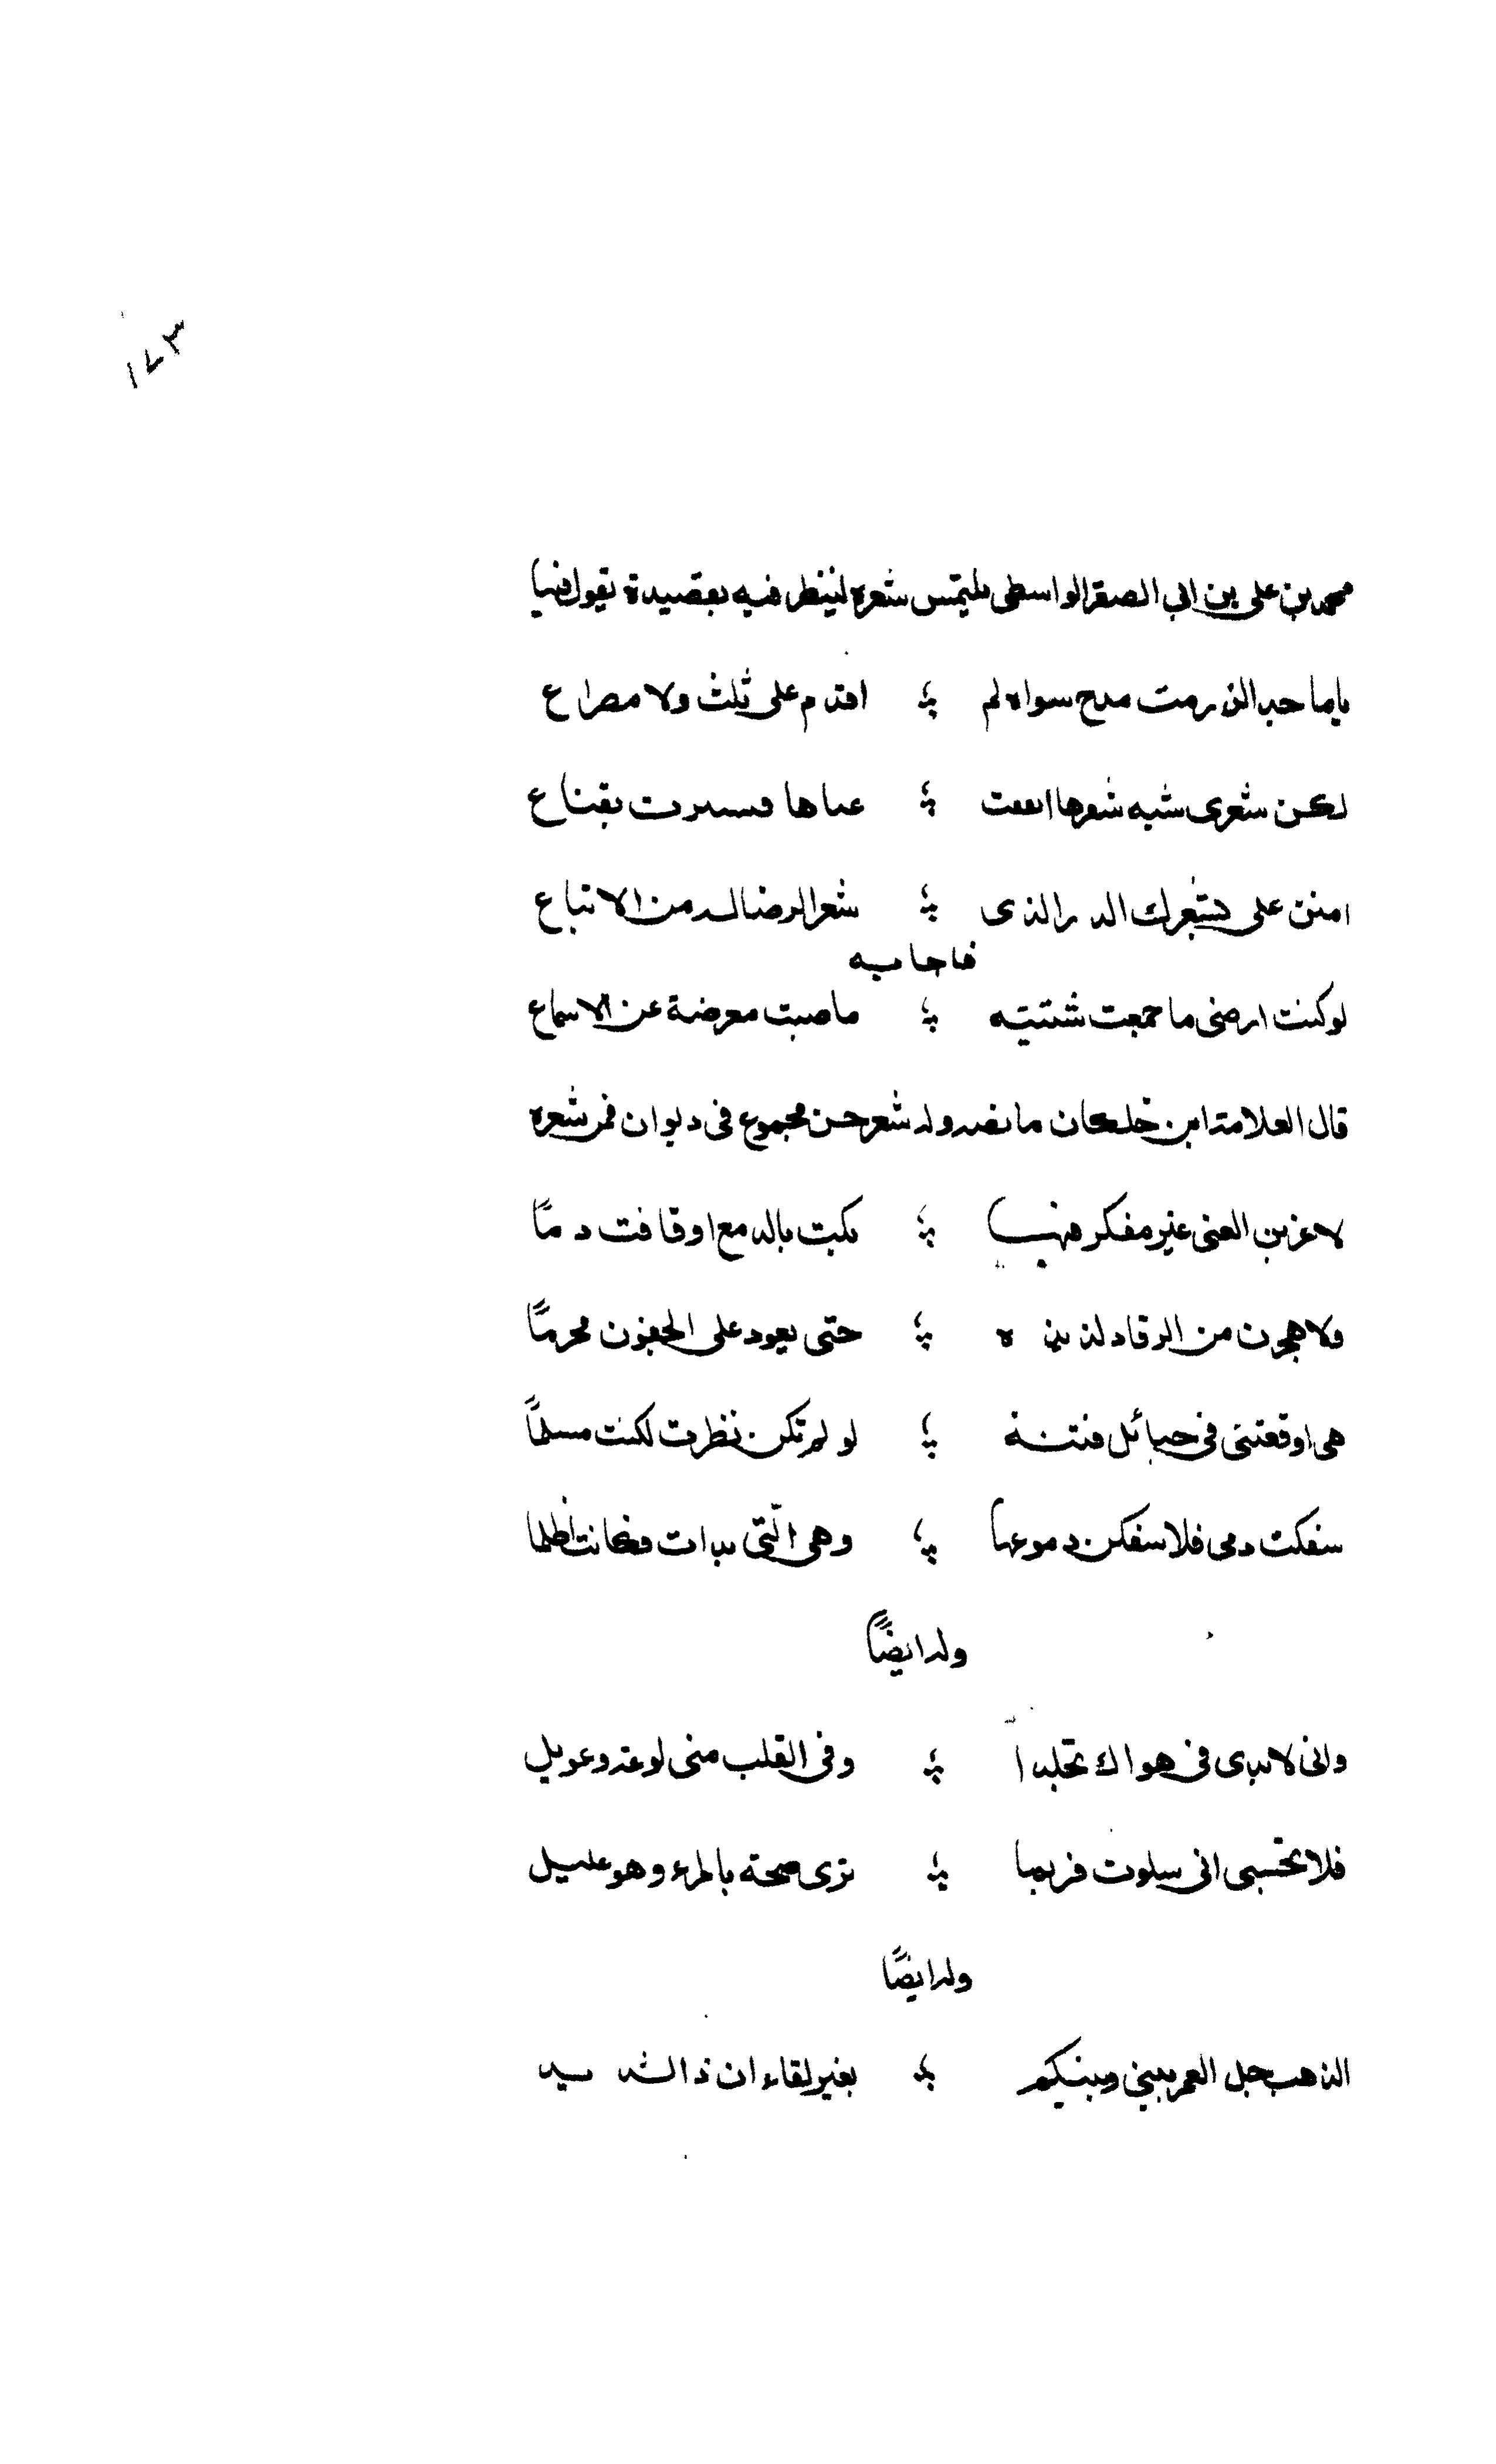 ١٧٣
محمد بن على بن ابى الصقر الواسطى يلتمس شعره لينظر فيه بقصيدة يقول فيها
ياما حبد الن رمت مدح سواه لم ؛ اقدم على ثلث ولا مصراع
لكن شعرى شبه شوها اىعت ؛ عىاها فسىرت بقناع
امنن على بشعرك الدر الذى ؛ شعر الرضا له من الاتباع
فاجابه
لو كنت ارضى ما جمعت شتيته ؛ ماصبت معرضة عن الاسماع
قال العلامة ابن خلكان ما نصه وله شعر حسن مجموع فى ديوان فمن شعره
لاغربن العنى غير مفكر فيها ؛ بكت بالدمع او فافت دمًا
ولاهجرن من الرقاد لذيذه ؛ حتى يعود على الجفون محرمًا
هى اوقعتنى فى حبائل فتنة ؛ لو لم تكن نظرت لكنت مسلمًا
سفكت دمى فلاسفكن دموعها ؛ وهى الّتى بدات فكانت اظلما
وله ايضًا
وانى لابدى فى هواك تجلدا ؛ وفى القلب منى لوعة وعويل
فلا تحسبى انى سلوت فربما ؛ ترى صحة بالمرء وهو عليل
وله ايضًا
ايذهب جل العمر بينى وبينكم ؛ بغير لقاء ان ذا لشديد